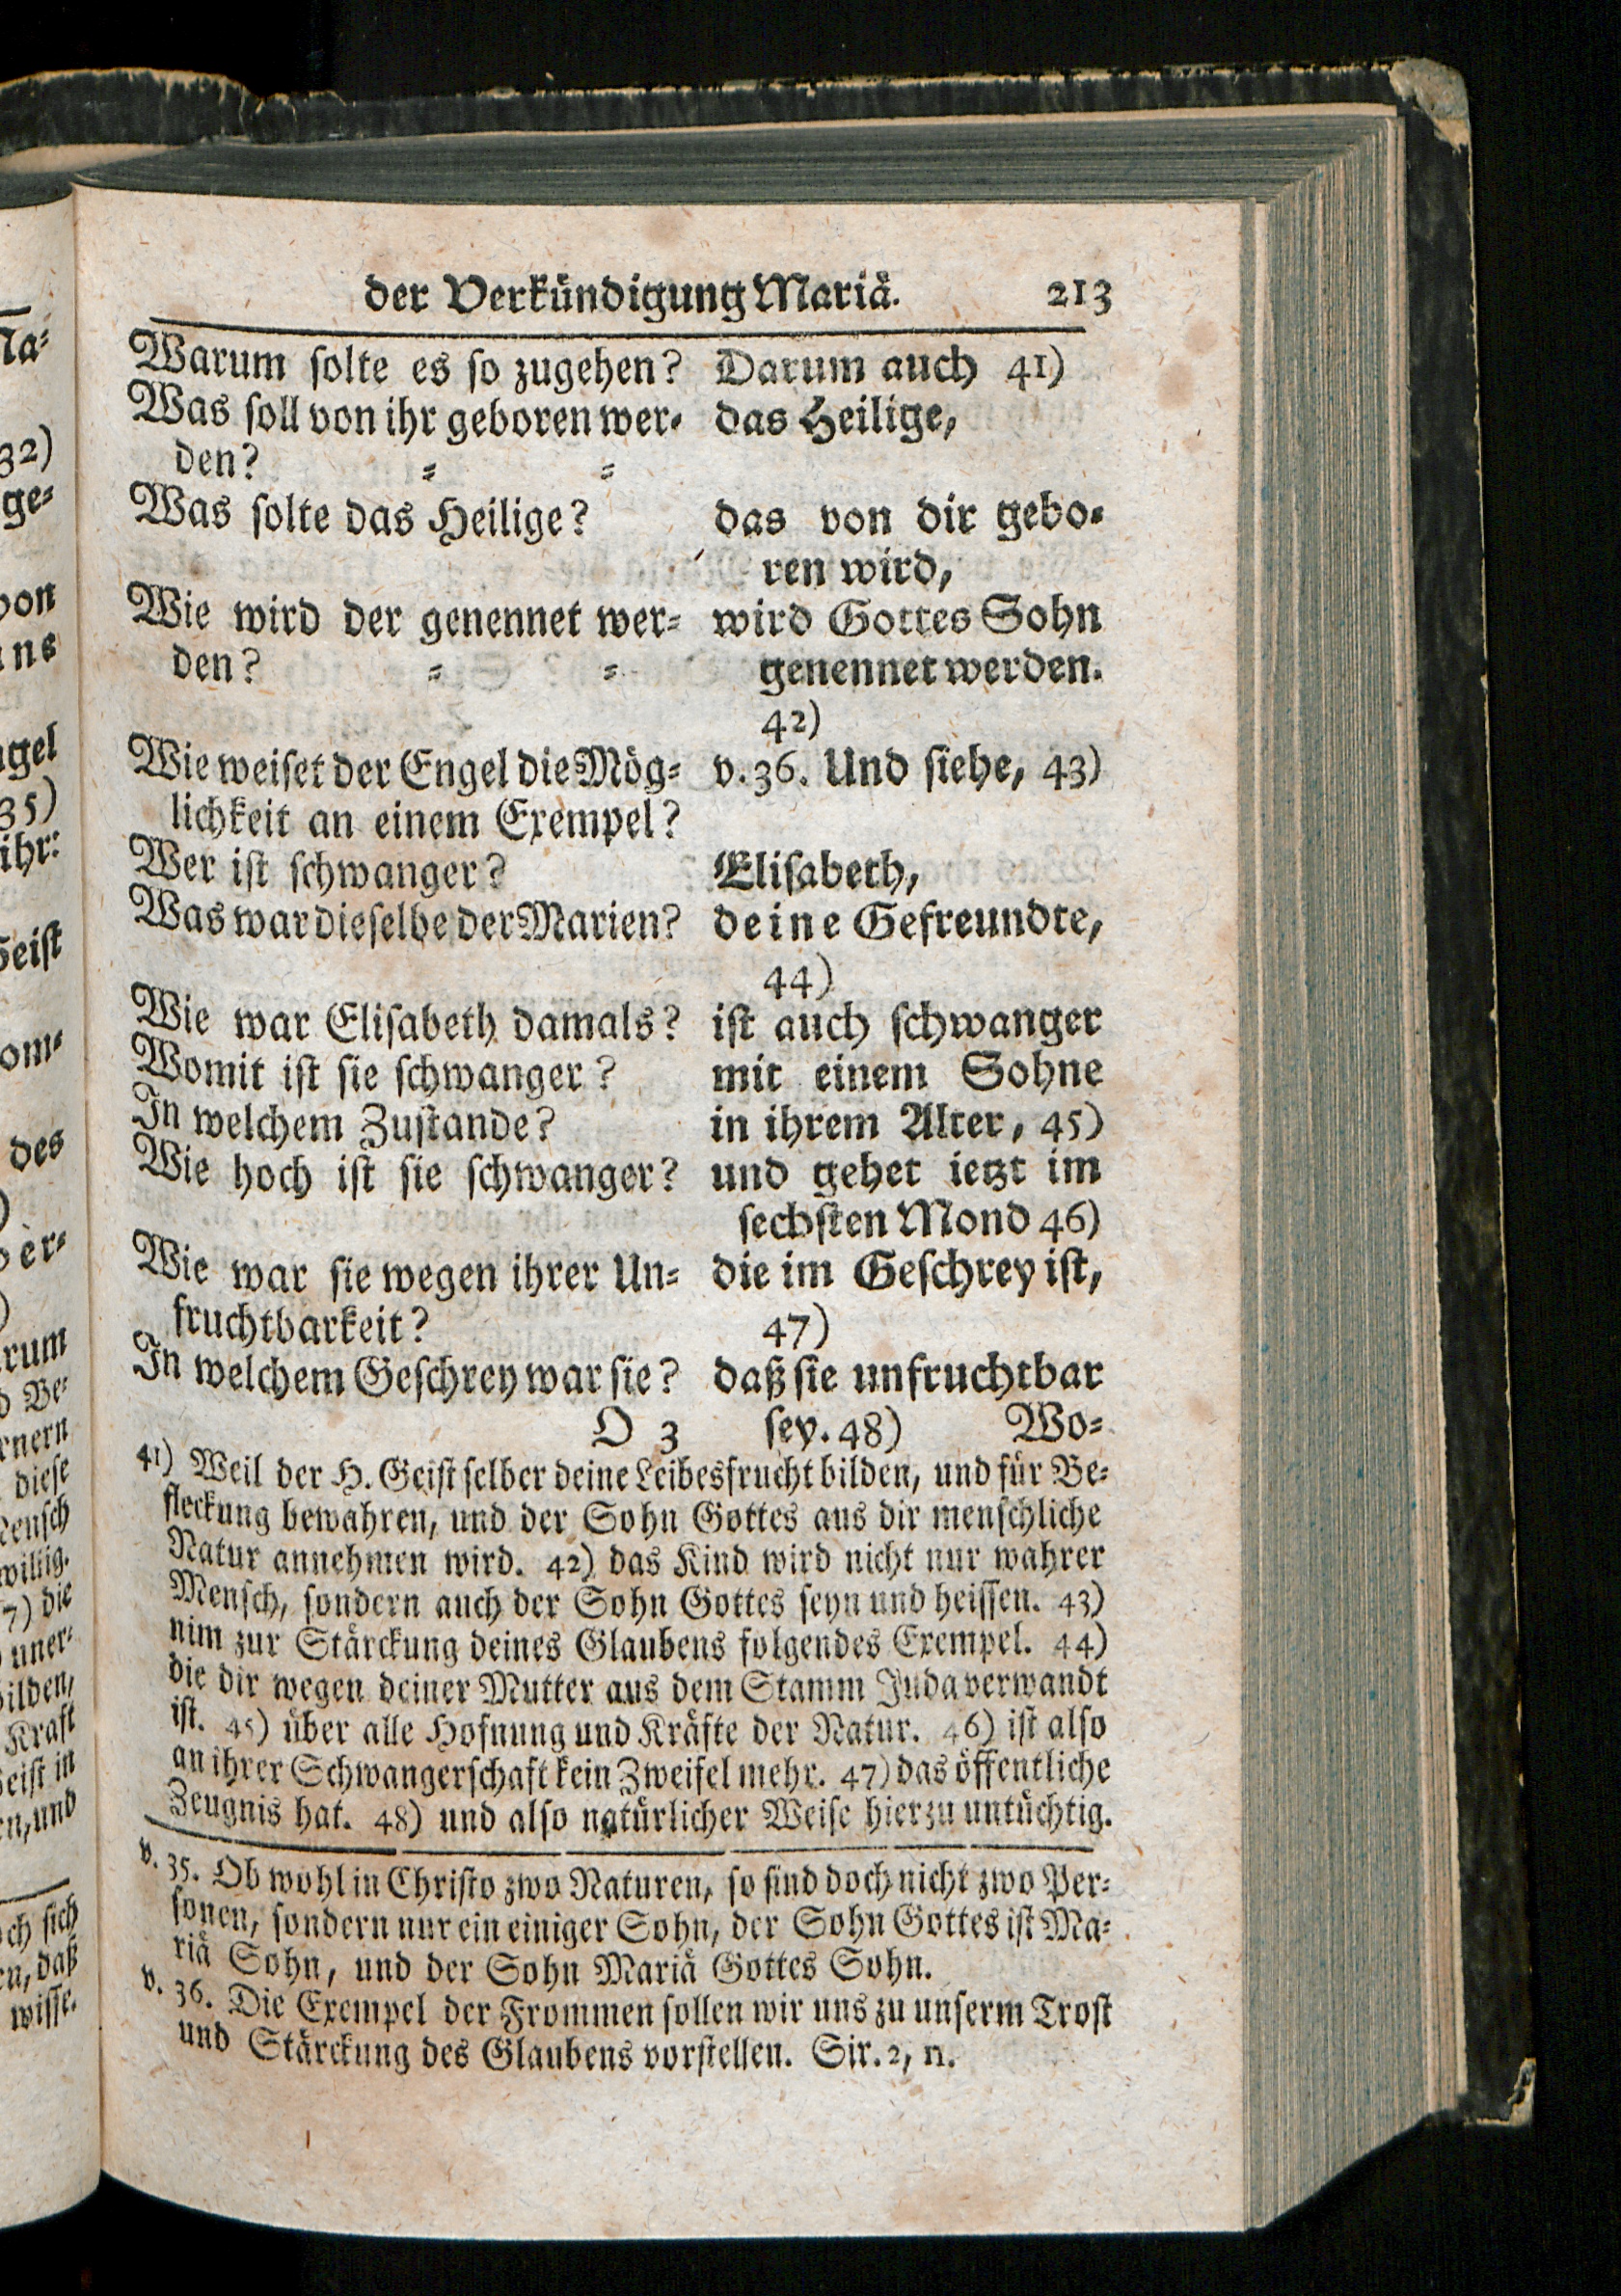 der Verkündigung Mariä. 213
Warum solte es so zugehen? Darum auch 41)
Was soll von ihr geboren wer- das Heilige,
den? = =
Was solte das Heilige? das von dir gebo-
ren wird,
Wie wird der genennet wer= wird Gottes Sohn
den? = = genennet werden.
42)
Wie weiset der Engel die Mög= v. 36. Und siehe, 43)
lichkeit an einem Exempel?
Wer ist schwanger? Elisabeth,
Was war dieselbe der Marien? deine Gefreundte,
44)
Wie war Elisabeth damals? ist auch schwanger
Womit ist sie schwanger? mit einem Sohne
In welchem Zustande? in ihrem Alter, 45)
Wie hoch ist sie schwanger? und gehet ietzt im
sechsten Mond 46)
Wie war sie wegen ihrer Un= die im Geschrey ist,
fruchtbarkeit? 47)
In welchem Geschrey war sie? daß sie unfruchtbar
O 3 sey. 48) Wo=
41) Weil der H. Geist selber deine Leibesfrucht bilden, und für Be=
fleckung bewahren, und der Sohn Gottes aus dir menschliche
Natur annehmen wird. 42) das Kind wird nicht nur wahrer
Mensch, sondern auch der Sohn Gottes seyn und heissen. 43)
nim zur Stärckung deines Glaubens folgendes Exempel. 44)
die dir wegen deiner Mutter aus dem Stamm Juda verwandt
ist. 45) über alle Hofnung und Kräfte der Natur. 46) ist also
an ihrer Schwangerschaft kein Zweifel mehr. 47) das öffentliche
Zeugnis hat. 48) und also natürlicher Weise hierzu untüchtig.
v. 35. Ob wohl in Christo zwo Naturen, so sind doch nicht zwo Per=
sonen, sondern nur ein einiger Sohn, der Sohn Gottes ist Ma=
riä Sohn, und der Sohn Mariä Gottes Sohn.
v. 36. Die Exempel der Frommen sollen wir uns zu unserm Trost
und Stärckung des Glaubens vorstellen. Sir. 2, 11.